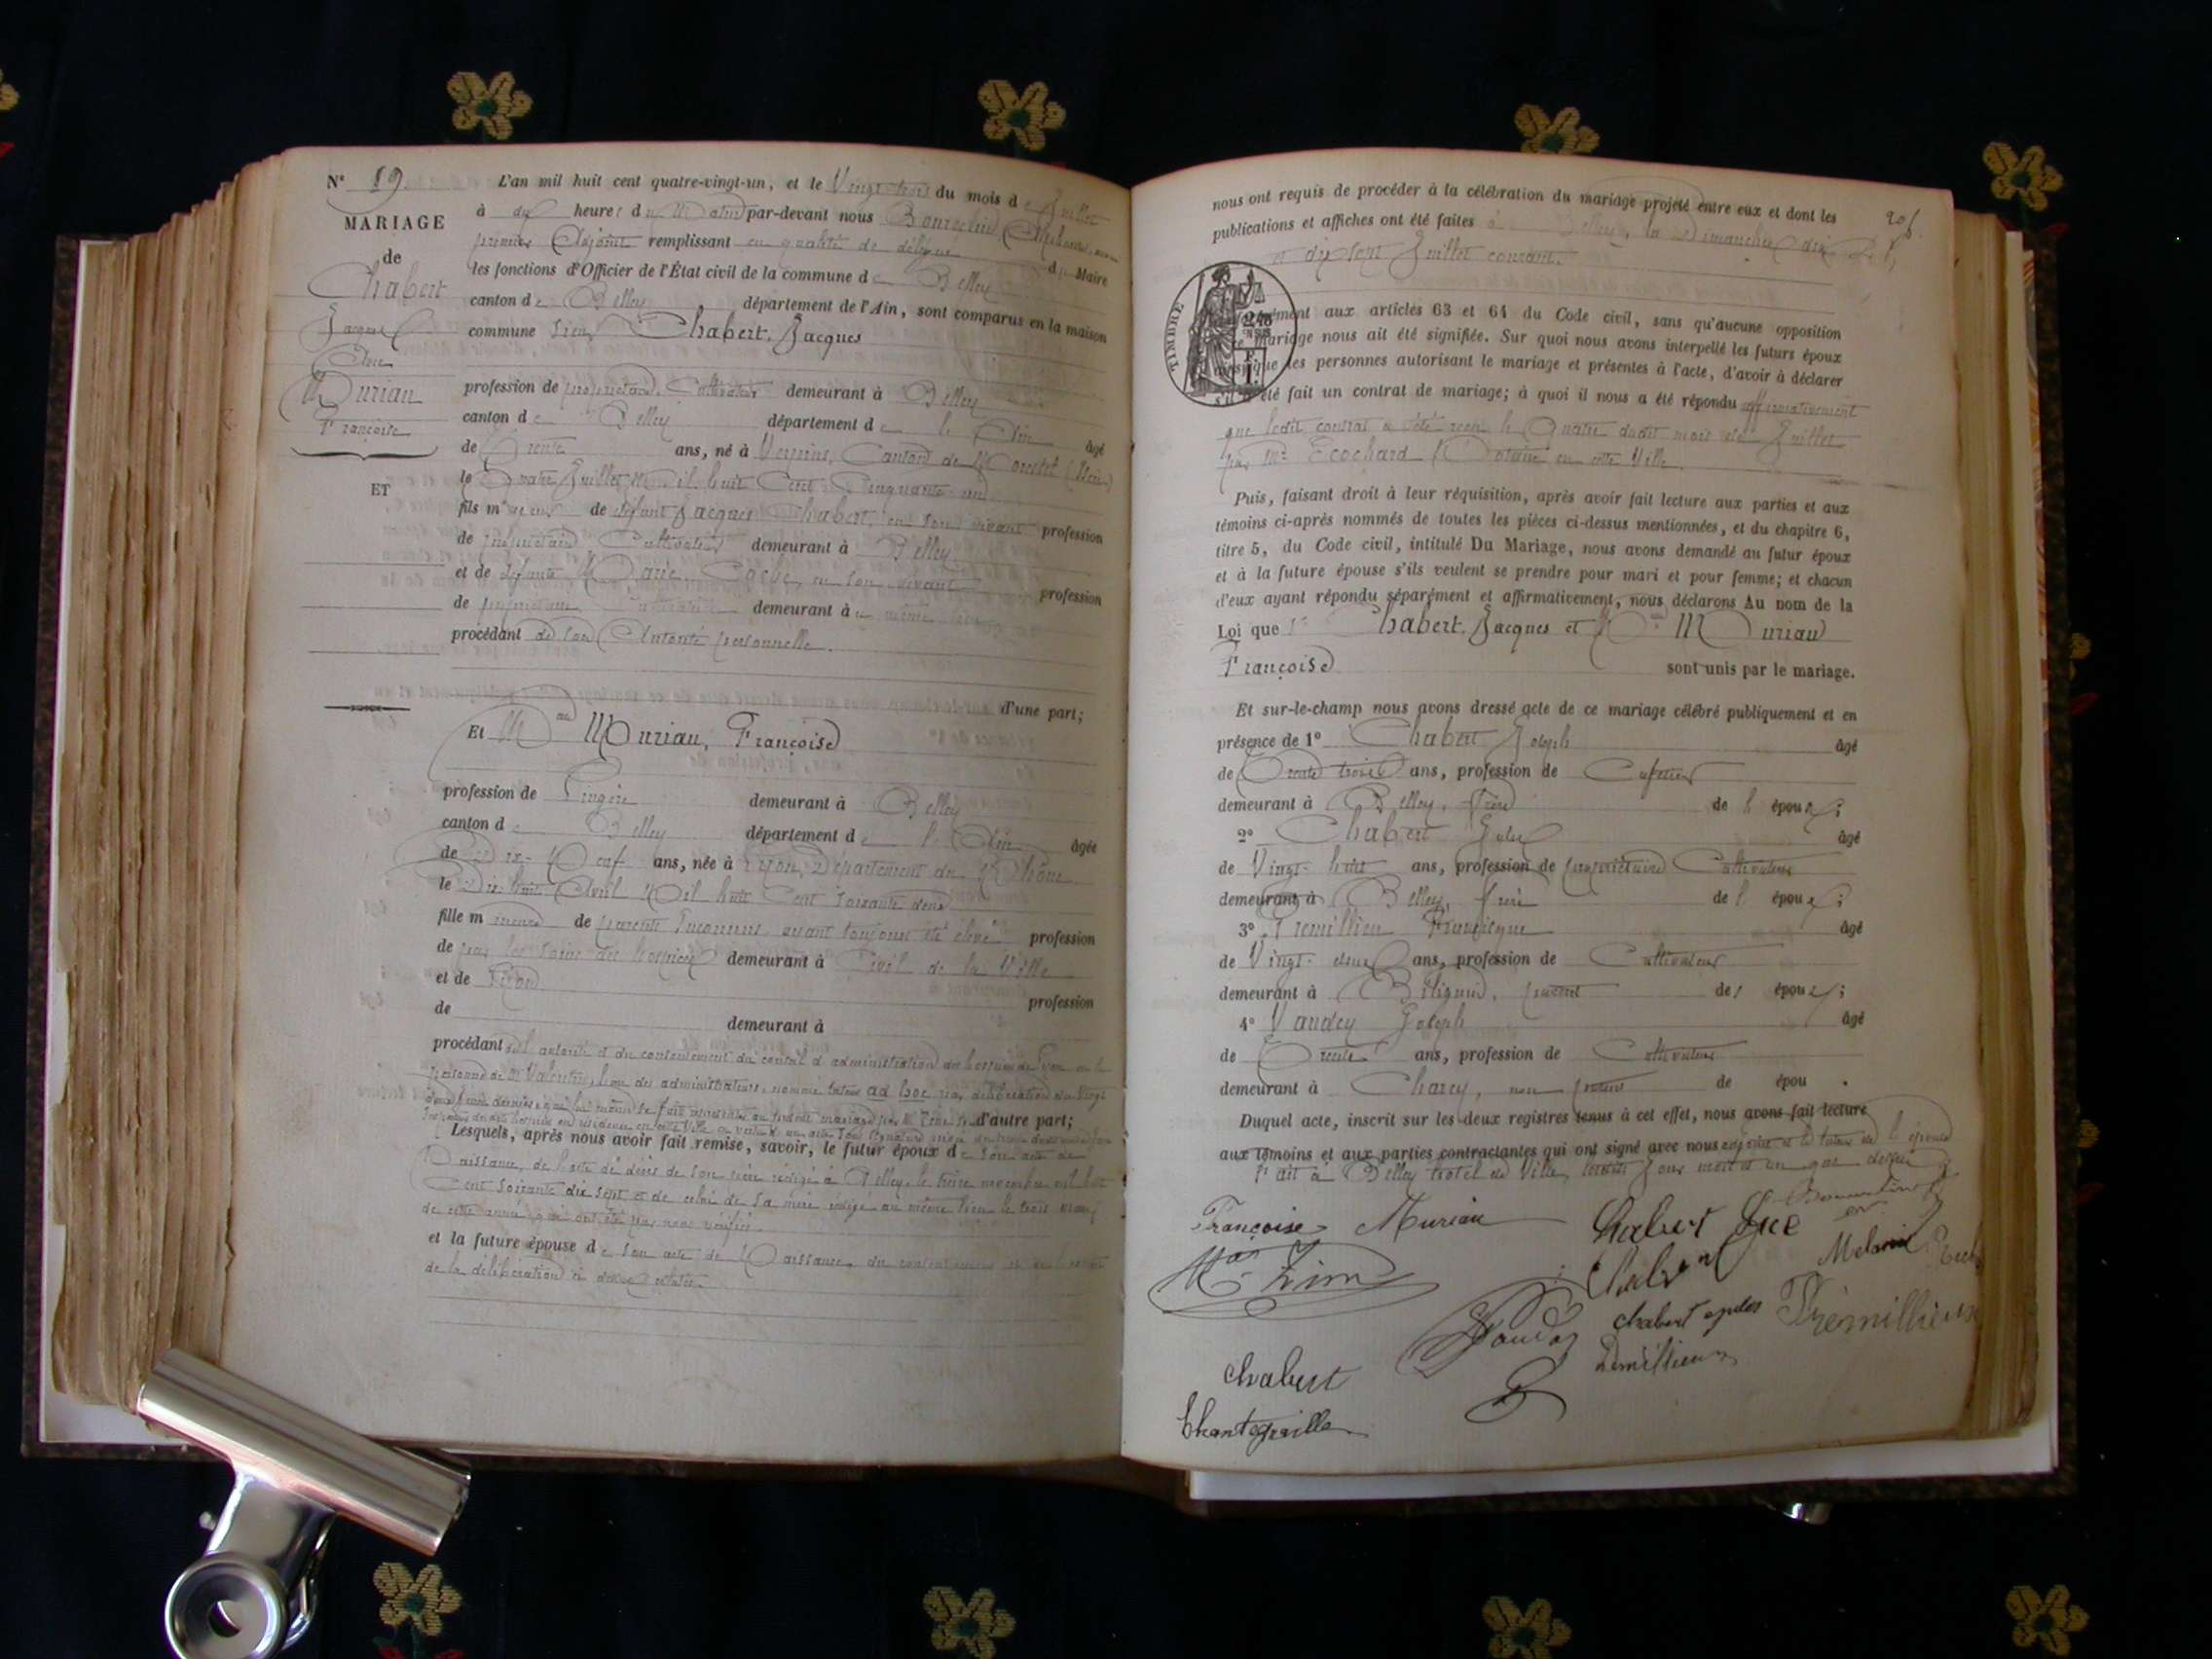 N° 19.
MARIAGE
de
Chabert
Jacques
Avec
Murian
Françoise
ET
L'an mil huit cent quatre-vingt-un, et le Vingt-trois du mois de Juillet
à dix heures du Matin par-devant nous
premier Adjoint remplissant en qualité de délégué du Maire
les fonctions d'Officier de l'État civil de la commune de Belley
canton de Belley département de l'Ain, sont comparus en la maison
commune sieur Chabert, Jacques
profession de propriétaire Cultivateur demeurant à Belley
canton de Belley département de l'Ain âgé
de Trente ans, né à Veyrins, Canton de Morestel (Isère)
le Quatre Juillet Mil huit Cent Cinquante un
fils majeur de défunt Jacques Chabert, en son vivant profession
de propriétaire Cultivateur demeurant à Belley
et de défunte Marie en son vivant profession
de propriétaire Cultivatrice demeurant au même lieu
procédant de son Autorité personnelle.
d'une part;
Et Murian, Françoise
profession de Lingère demeurant à Belley
canton de Belley département de l'Ain âgée
de Dix-Neuf ans, née à Lyon, Département du Rhône
le Dix huit Avril Mil huit Cent soixante deux
fille mineure de parents Inconnus ayant toujours été élevée profession
de par les soins des hospices demeurant à Civil de la Ville
et de Lyon profession
de demeurant à
procédant de l'autorité et du consentement du conseil d'administration des hospices de Lyon en la
personne de Mr Valentin, l'un des administrateurs, nommé tuteur ad hoc par délibération du Vingt
d'autre part;
Lesquels, après nous avoir fait remise, savoir, le futur époux de son acte de
Naissance, de l'acte de décès de son père rédigé à Belley, le treize novembre mil huit
Cent soixante dix sept et de celui de sa mère rédigé au même lieu le trois mars
de cette année, qui ont été par nous vérifiés.
et la future épouse de son acte de Naissance, du consentement et de l'extrait
de la délibération ci dessus relatée.
nous ont requis de procéder à la célébration du mariage projeté entre eux et dont les
publications et affiches ont été faites à Belley, les Dimanches dix
et dix sept Juillet courant.
TIMBRE
conformément aux articles 63 et 64 du Code civil, sans qu'aucune opposition
mariage nous ait été signifiée. Sur quoi nous avons interpellé les futurs époux
ainsi que les personnes autorisant le mariage et présentes à l'acte, d'avoir à déclarer
s'il a été fait un contrat de mariage; à quoi il nous a été répondu affirmativement
que ledit contrat a été reçu le Quatre dudit mois de Juillet
par Me Ecochard Notaire en cette Ville.
Puis, faisant droit à leur réquisition, après avoir fait lecture aux parties et aux
témoins ci-après nommés de toutes les pièces ci-dessus mentionnées, et du chapitre 6,
titre 5, du Code civil, intitulé Du Mariage, nous avons demandé au futur époux
et à la future épouse s'ils veulent se prendre pour mari et pour femme; et chacun
d'eux ayant répondu séparément et affirmativement, nous déclarons Au nom de la
Loi que Chabert, Jacques et Murian
Françoise sont unis par le mariage.
Et sur-le-champ nous avons dressé acte de ce mariage célébré publiquement et en
présence de 1° Chabert Joseph âgé
de Trente trois ans, profession de Cafetier
demeurant à Belley, frère de l'époux;
2° Chabert Jules âgé
de Vingt-huit ans, profession de propriétaire Cultivateur
demeurant à Belley, frère de l'époux;
3° Tremillieu Francisque âgé
de Vingt-deux ans, profession de Cultivateur
demeurant à parent de l'époux;
4° Vaudey Joseph âgé
de Trente ans, profession de Cultivateur
demeurant à non parent de épou .
Duquel acte, inscrit sur les deux registres tenus à cet effet, nous avons fait lecture
aux témoins et aux parties contractantes qui ont signé avec nous
Fait à Belley hotel de Ville, jour mois et an que dessus
Françoise Murian
Chabert
chabert jules
Trémillieux
chabert